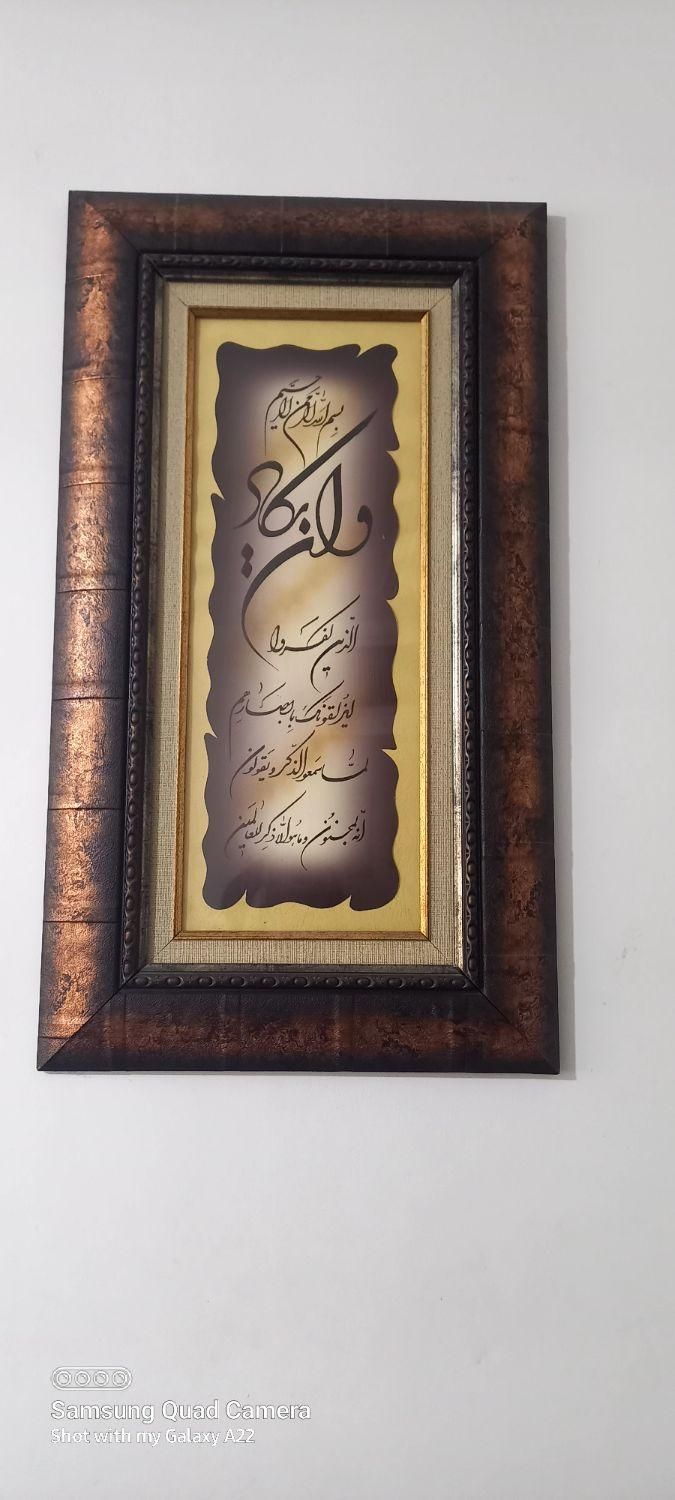 بسم الله الرحمن الرحیم
وان یکاد
الّذین کفروا
لیزلقونک بابصارهم
لمّا سمعوا الذّکر و یقولون
انّه لمجنون و ما هو الّا ذکر للعالمین
Samsung Quad Camera
Shot with my Galaxy A22